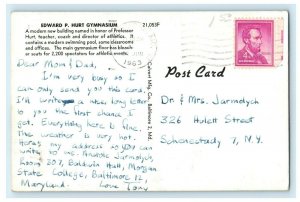 EDWARD P. HURT GYMNASIUM
21,053F
A modern new building named in honor of Professor
Hurt, teacher, coach and director of athletics. It
contains a modern swimming pool, some classrooms
and offices. The main gymnasium floor has bleach-
er seats for 2,200 spectators for athletic events.
1963
Dear Mom & Dad,
I'm very busy so I
can only send you this card.
I'll write a nice, long letter
to you the first chance I
get. Everything here is fine.
The weather is very hot.
Here's my address so you can
write to me. Anatole Jarmolych,
Room 207, Baldwin Hall, Morgan
State College, Baltimore 12,
Maryland. Love
Calvert Mfg. Co., Baltimore 2, Md.
Post Card
Dr & Mrs. Jarmolych
326 Hulett Street
Schenectady 7, N.Y.